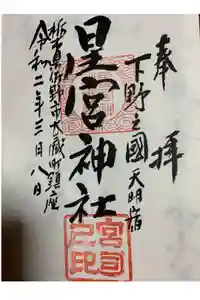 奉拝
下野之國天明宿
星宮神社
栃木県佐野市大蔵町鎮座
令和二年三月八日
宮司之印